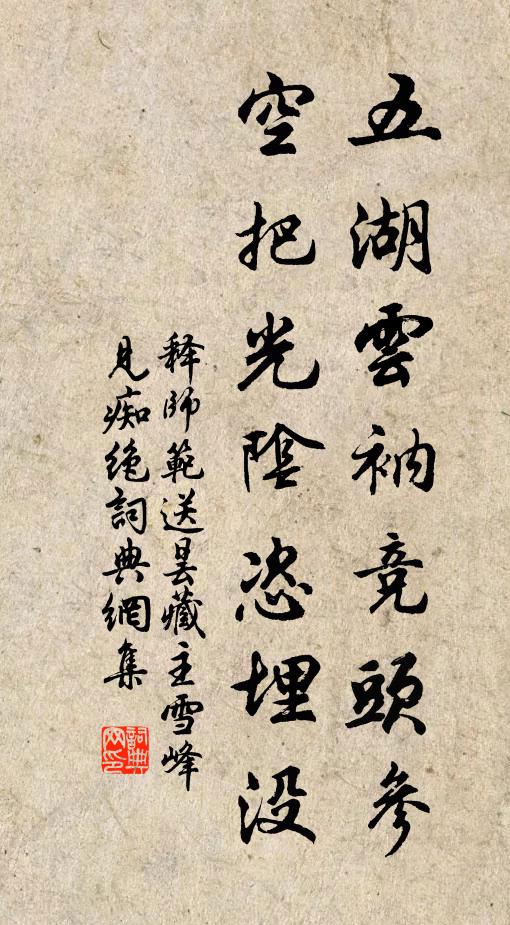 五湖雲衲竞頭參
空把光陰恣埋没
释師範送昙藏主雪峰
見痴绝詞典網集
詞典网印